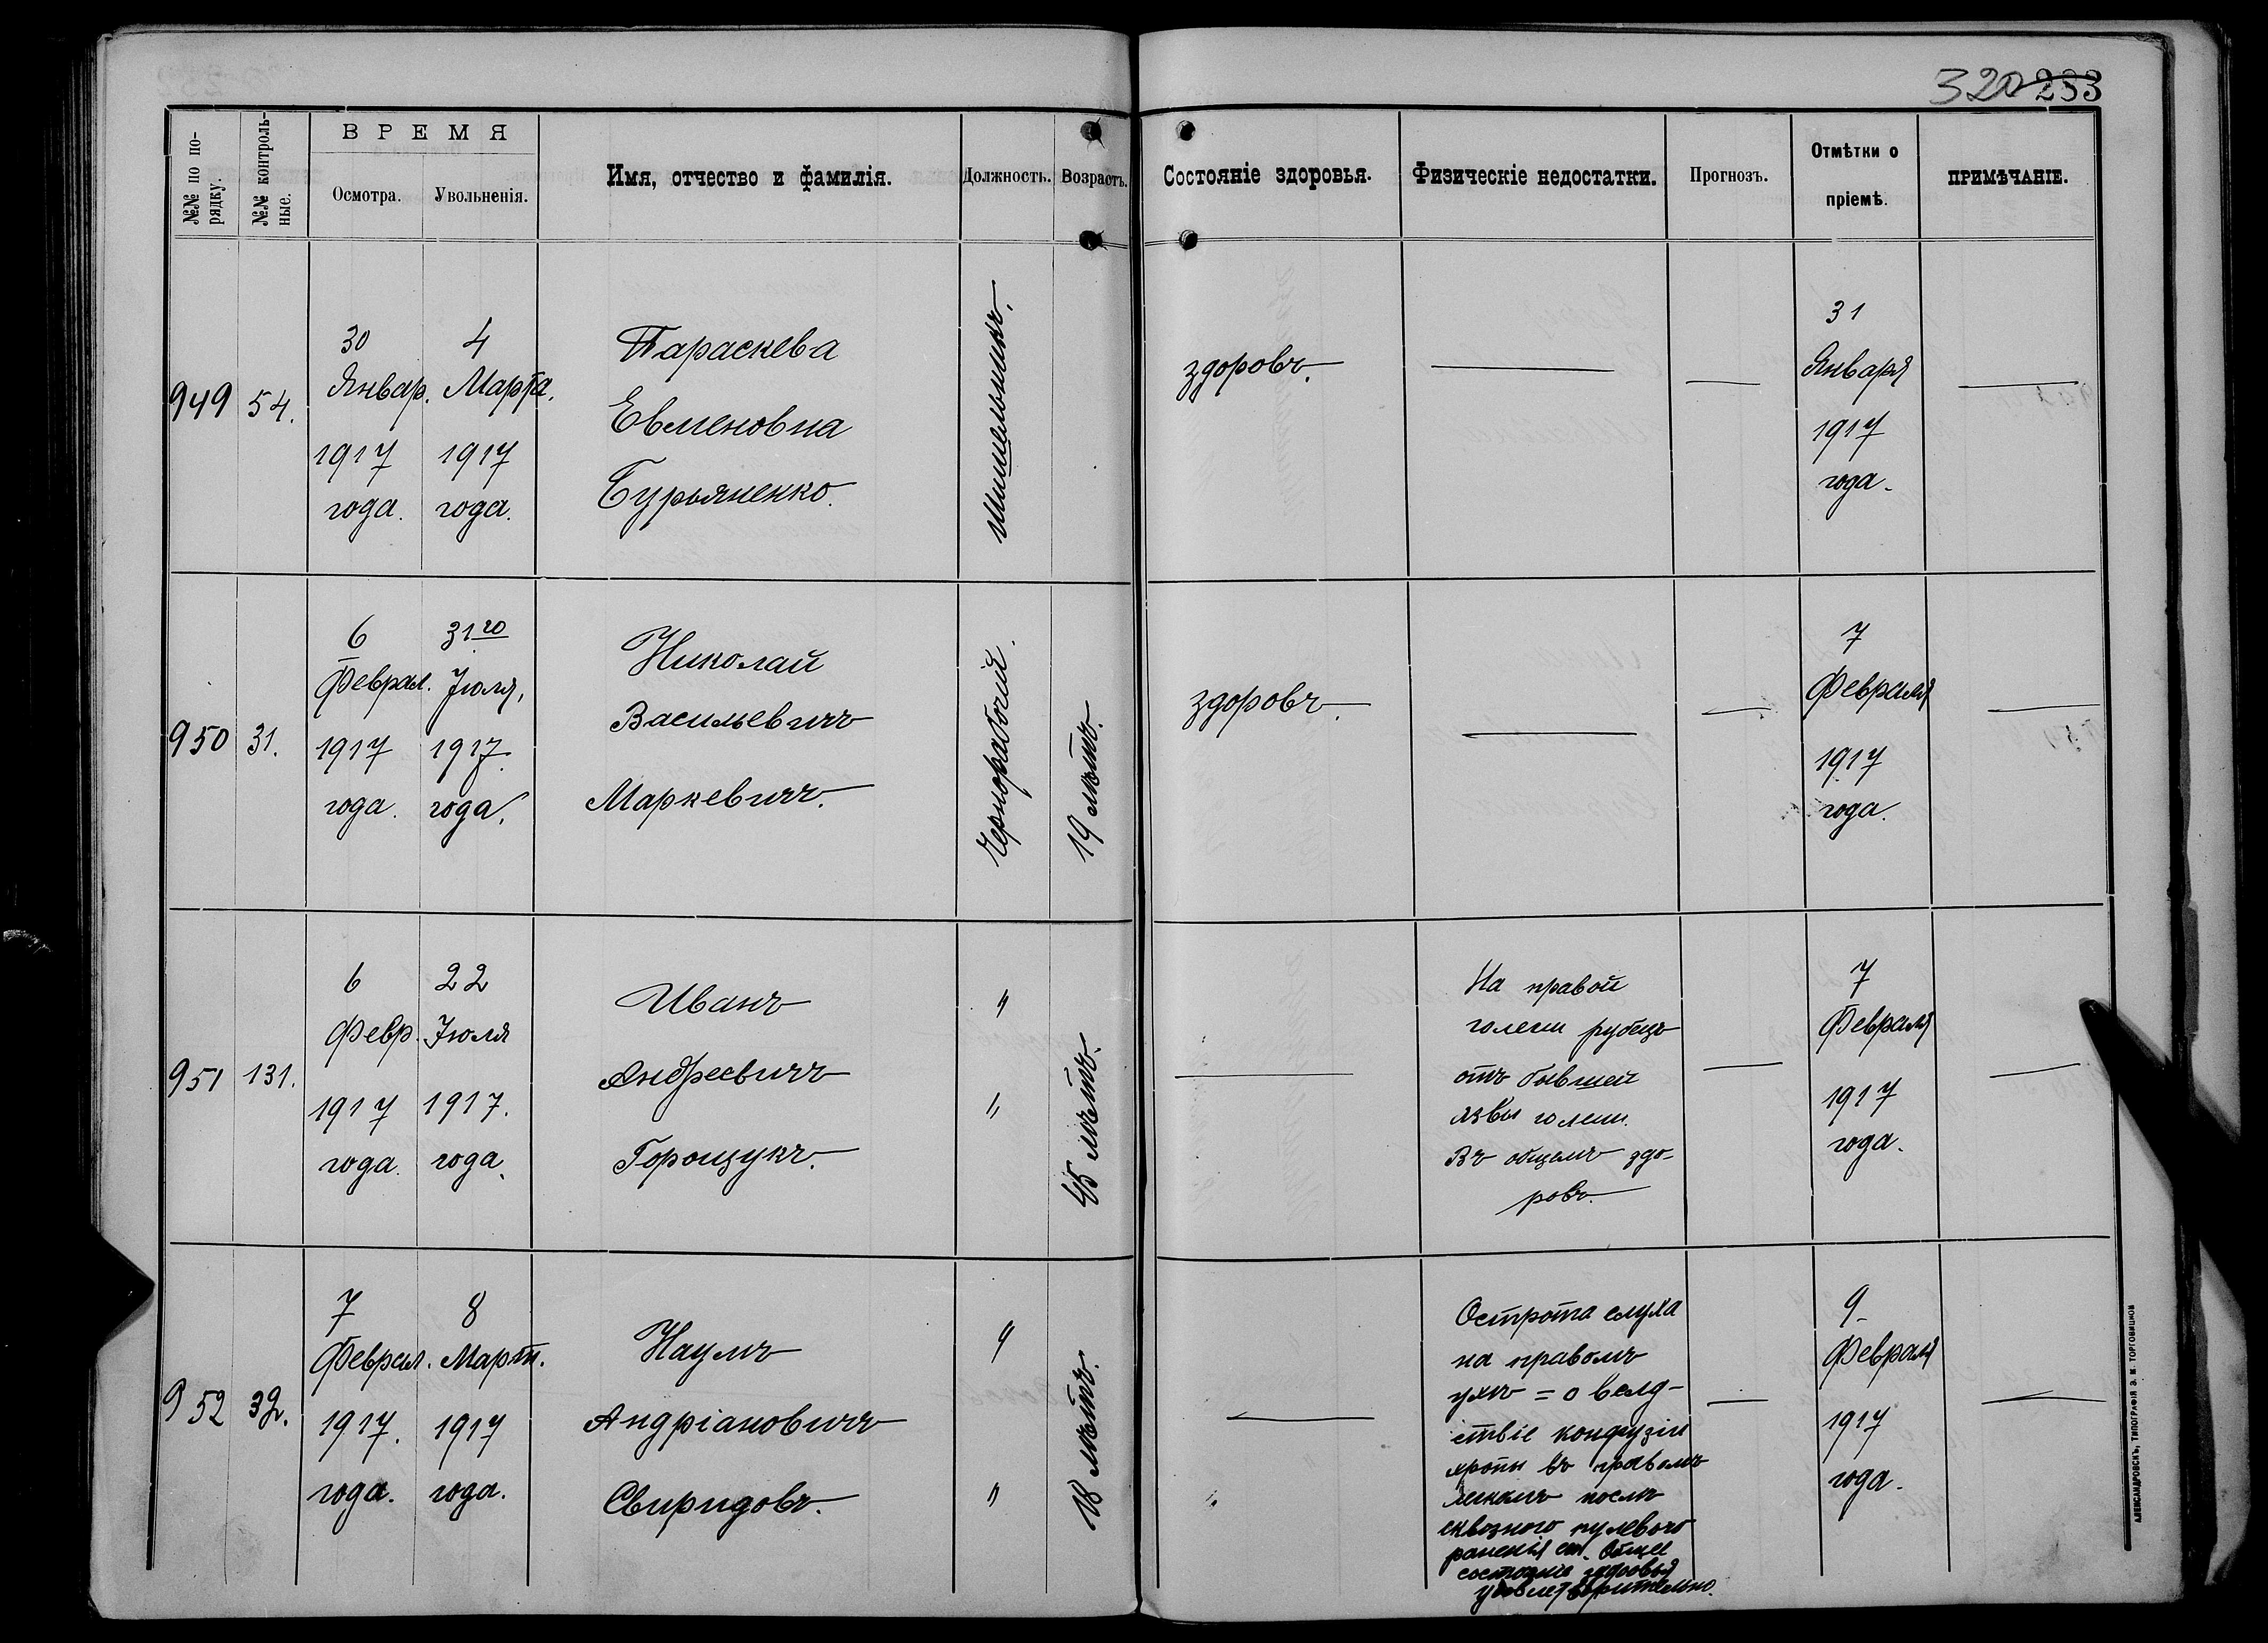 320 283
№№ по по-
рядку.
№№ контроль-
ные.
ВРЕМЯ
Осмотра.
Увольненія.
Имя, отчество и фамилія.
Должность.
Возрастъ.
Состояніе здоровья.
Физическіе недостатки.
Прогнозъ.
Отмѣтки о
пріемѣ.
ПРИМѢЧАНІЕ.
949
54.
30
Январ.
1917
года.
4
Марта.
1917
года.
Параскева
Евменовна
Бурьяненко.
здоровъ.
31
Января
1917
года.
950
31.
6
Феврал.
1917
года.
31го
Іюля,
1917.
года.
Николай
Васильевичъ
Маркевичъ.
Чернорабочій.
19 лѣтъ.
здоровъ.
7
Февраля
1917
года.
951
131.
6
Февр.
1917
года.
22
Іюля
1917.
года.
Иванъ
Андреевичъ
Горощукъ.
"
"
45 лѣтъ.
На правой
голени рубецъ
отъ бывшей
язвы голени.
Въ общемъ здо-
ровъ.
7
Февраля
1917
года.
952
7
Феврал.
1917.
года.
8
Март.
1917
года.
Наумъ
Андріановичъ
Свиридовъ.
"
"
18 лѣтъ.
Острота слуха
на правомъ
ухѣ = 0 вслд-
ствіе контузіи
хрипы въ правомъ
легкомъ послѣ
сквозного пулевого
раненія его. Общее
состояніе здоровья
удовлетворительно.
9
Февраля
1917
года.
АЛЕКСАНДРОВСКЪ, ТИПОГРАФІЯ Э. И. ТОРГОВИЦКОВ